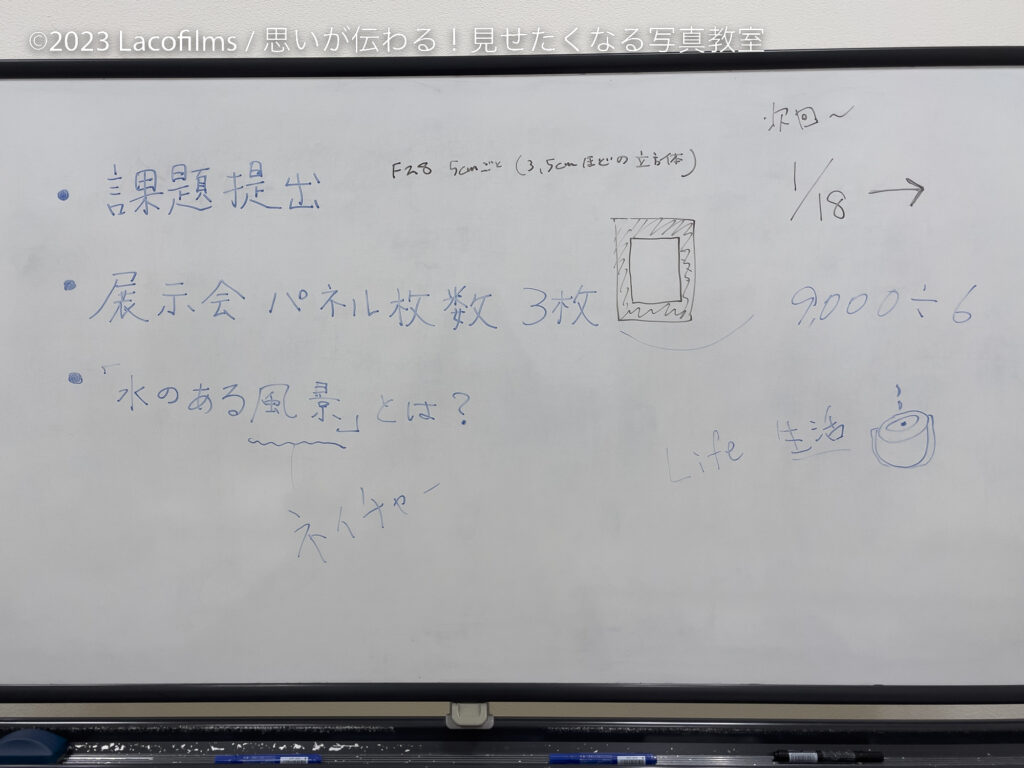 ©2023 Lacofilms / 思いが伝わる！見せたくなる写真教室
次回～
・課題提出
F2.8 5cmごと (3,5cmほどの立方体)
1/18 →
・展示会 パネル枚数 3枚
9,000÷6
・「水のある風景」とは？
Life 生活
ネイチャー